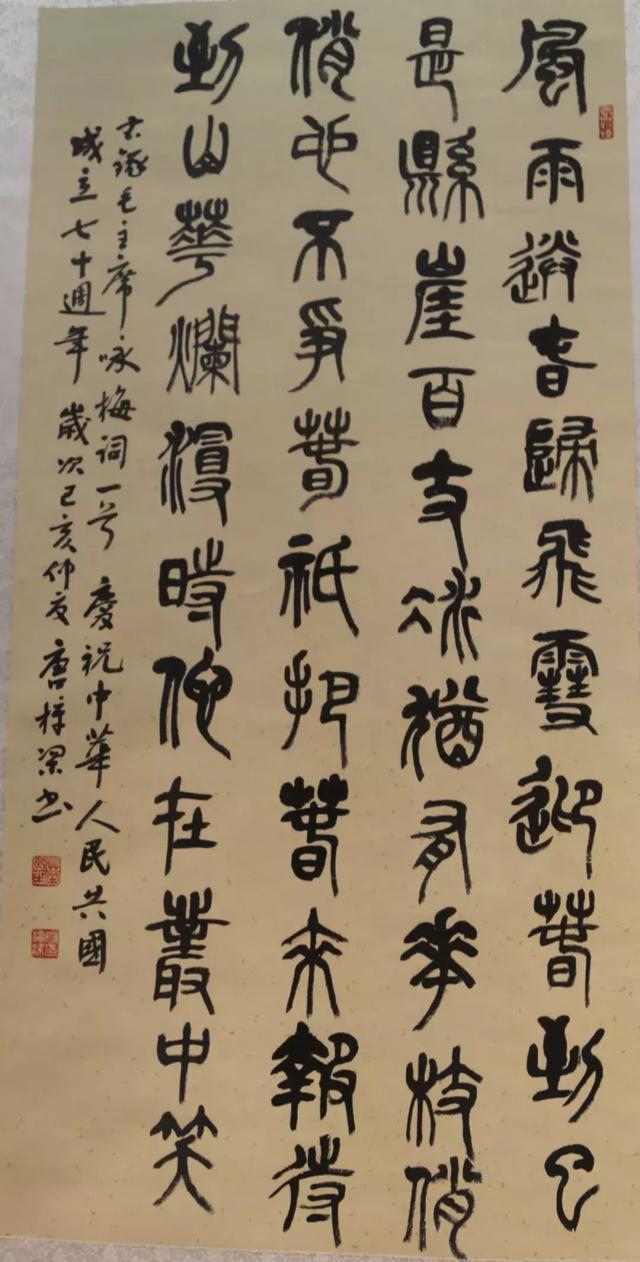 風雨送春歸飛雪迎春到已
是縣崖百丈冰猶有華枝俏
俏也不爭春祇把春來報待
到山華爛漫時他在叢中笑
右錄毛主席咏梅詞一首 慶祝中華人民共國
成立七十週年 歲次己亥仲夏 唐梓梁書